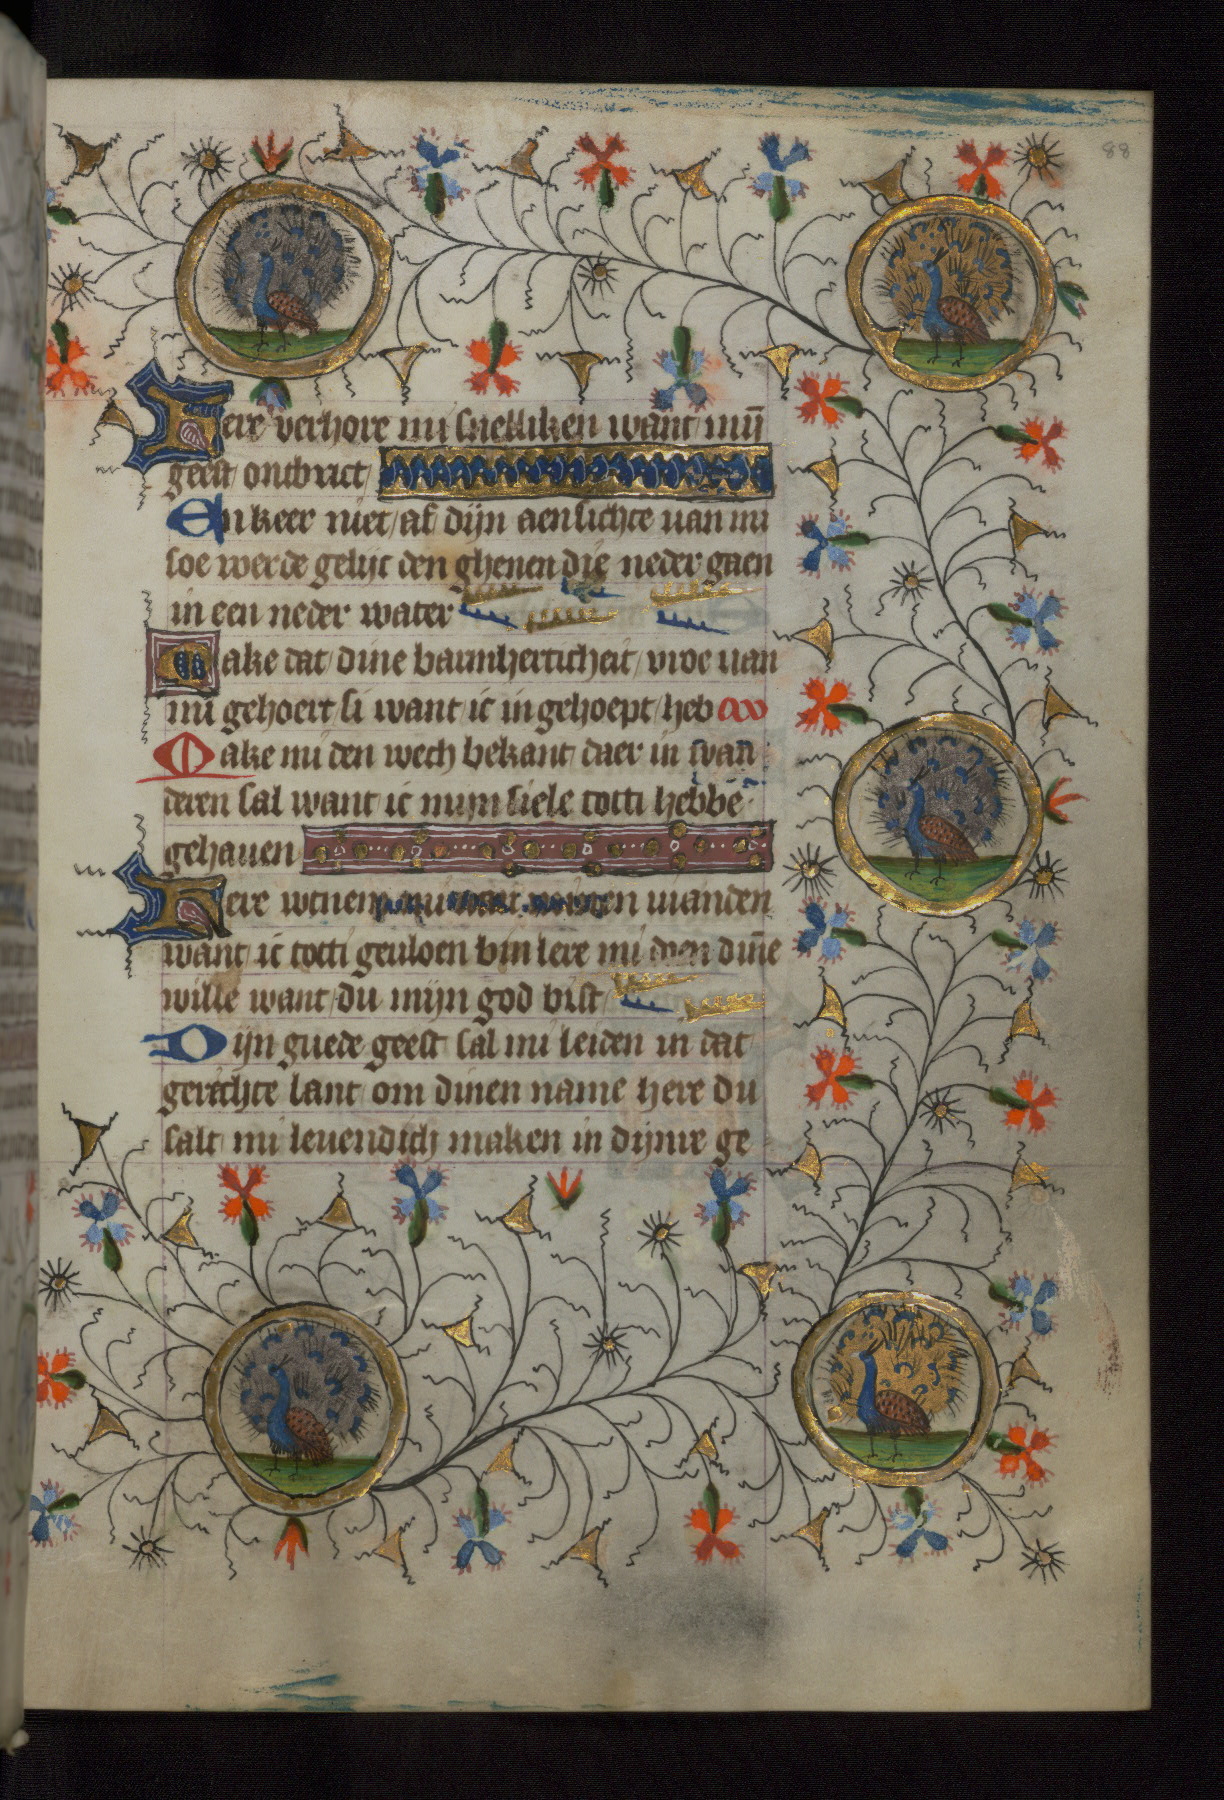 88
Here verhore mi snelliken want mijn̄
geest ontbrict
En keer niet af dijn aensichte uan mi
soe werde gelijc den ghenen die neder gaen
in een neder water
Make dat dine barmherticheit vroe uan
mi gehoert si want ic in gehoept heb
Make mi den wech bekant daer in ic wan
deren sal want ic mijn siele totti hebbe
gehauen
Here uianden
want ic totti geuloen bin lere mi doen din̄e
wille want du mijn god bist
Dijn guede geest sal mi leiden in dat
gerechte lant om dinen name here du
salt mi leuendich maken in dijnre ge